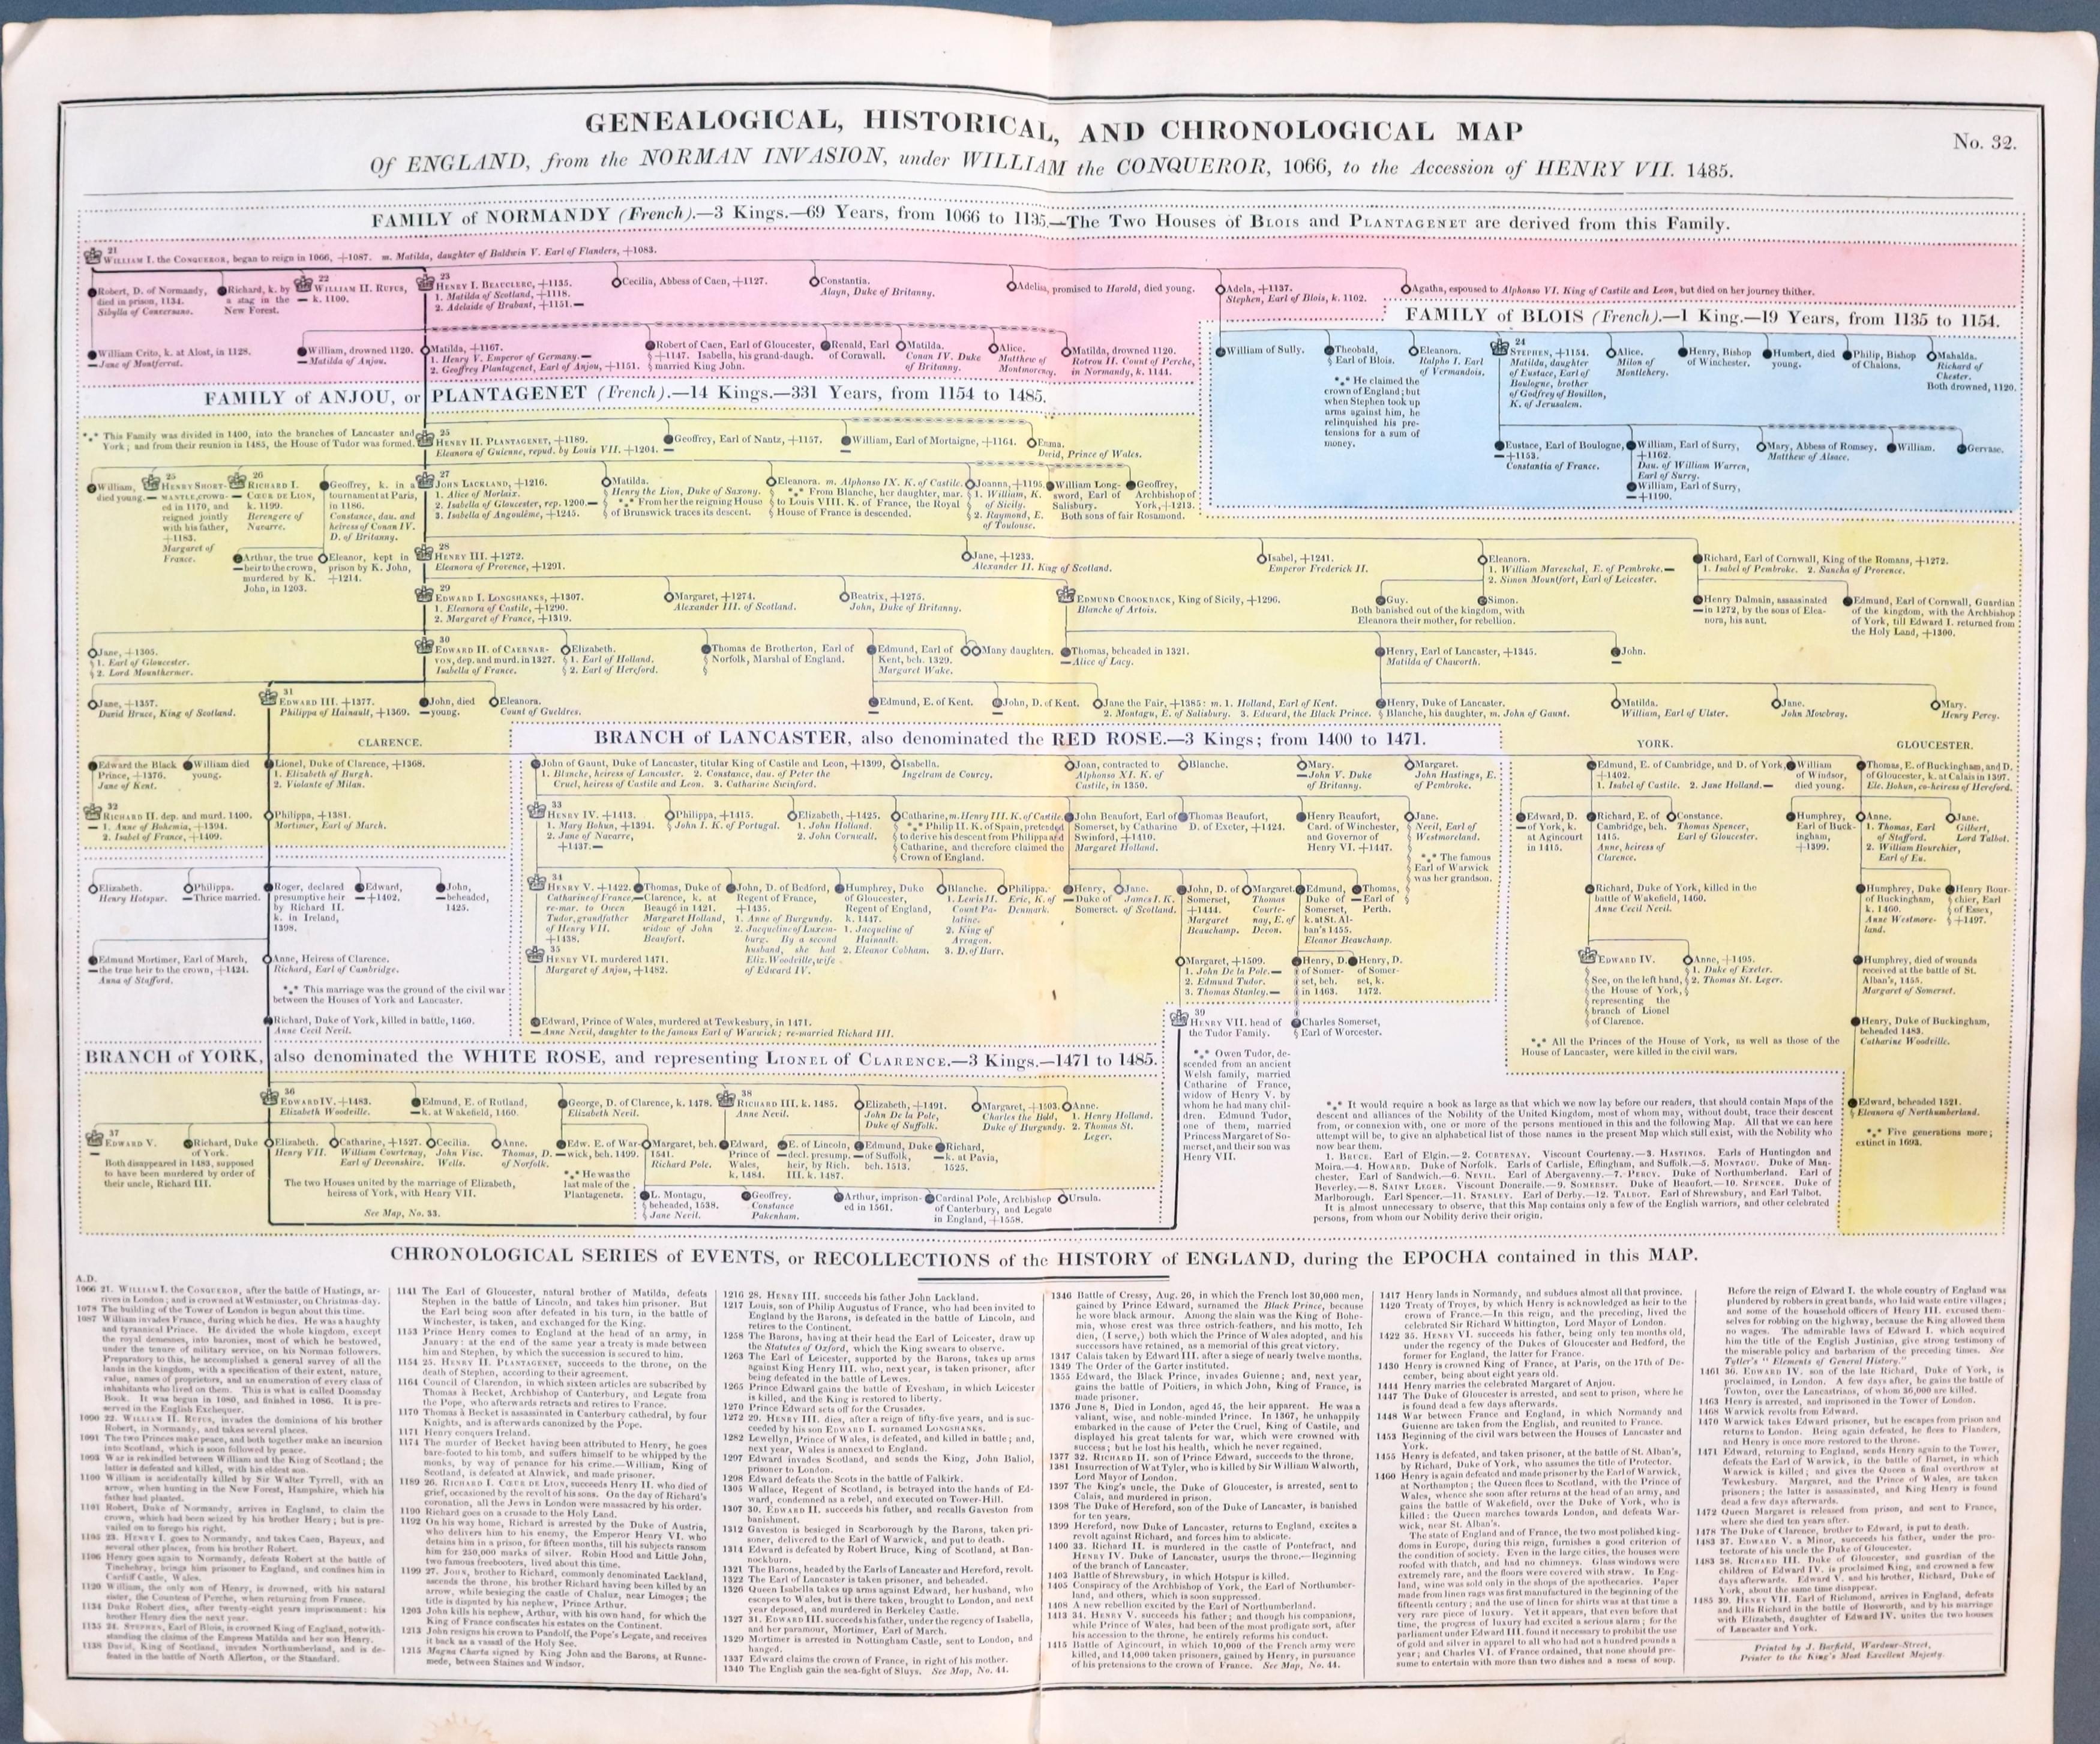 GENEALOGICAL, HISTORICAL, AND CHRONOLOGICAL MAP
No. 32.
Of ENGLAND, from the NORMAN INVASION, under WILLIAM the CONQUEROR, 1066, to the Accession of HENRY VII. 1485.
FAMILY of NORMANDY (French).—3 Kings.—69 Years, from 1066 to 1135.—The Two Houses of BLOIS and PLANTAGENET are derived from this Family.
21
WILLIAM I. the CONQUEROR, began to reign in 1066, +1087. m. Matilda, daughter of Baldwin V. Earl of Flanders, +1083.
Robert, D. of Normandy,
died in prison, 1134.
Sibylla of Conversano.
Richard, k. by
a stag in the
New Forest.
22
WILLIAM II. RUFUS,
— k. 1100.
23
HENRY I. BEAUCLERC, +1135.
1. Matilda of Scotland, +1118.
2. Adelaide of Brabant, +1151.—
Cecilia, Abbess of Caen, +1127.
Constantia.
Alayn, Duke of Britanny.
Adeliza, promised to Harold, died young.
Adela, +1137.
Stephen, Earl of Blois, k. 1102.
Agatha, espoused to Alphonso VI. King of Castile and Leon, but died on her journey thither.
William Crito, k. at Alost, in 1128.
—Jane of Montferrat.
William, drowned 1120.
—Matilda of Anjou.
Matilda, +1167.
1. Henry V. Emperor of Germany.—
2. Geoffrey Plantagenet, Earl of Anjou, +1151.
Robert of Caen, Earl of Gloucester,
+1147. Isabella, his grand-daugh.
married King John.
Renald, Earl
of Cornwall.
Matilda.
Conan IV. Duke
of Britanny.
Alice.
Matthew of
Montmorency.
Matilda, drowned 1120.
Rotrou II. Count of Perche,
in Normandy, k. 1144.
FAMILY of BLOIS (French).—1 King.—19 Years, from 1135 to 1154.
William of Sully.
Theobald,
Earl of Blois.
*** He claimed the
crown of England; but
when Stephen took up
arms against him, he
relinquished his pre-
tensions for a sum of
money.
Eleanora.
Ralpho I. Earl
of Vermandois.
24
STEPHEN, +1154.
Matilda, daughter
of Eustace, Earl of
Boulogne, brother
of Godfrey of Bouillon,
K. of Jerusalem.
Alice.
Milon of
Montlchery.
Henry, Bishop
of Winchester.
Humbert, died
young.
Philip, Bishop
of Chalons.
Mahalda.
Richard of
Chester.
Both drowned, 1120.
Eustace, Earl of Boulogne,
—+1153.
Constantia of France.
William, Earl of Surry,
+1162.
Dau. of William Warren,
Earl of Surry.
William, Earl of Surry,
—+1190.
Mary, Abbess of Romsey.
Matthew of Alsace.
William.
Gervase.
FAMILY of ANJOU, or PLANTAGENET (French).—14 Kings.—331 Years, from 1154 to 1485.
*** This Family was divided in 1400, into the branches of Lancaster and
York; and from their reunion in 1485, the House of Tudor was formed.
25
HENRY II. PLANTAGENET, +1189.
Eleanora of Guienne, repud. by Louis VII. +1204.
Geoffrey, Earl of Nantz, +1157.
William, Earl of Mortaigne, +1164.
Emma.
David, Prince of Wales.
William,
died young.—
25
HENRY SHORT-
MANTLE, crown-
ed in 1170, and
reigned jointly
with his father,
+1183.
Margaret of
France.
26
RICHARD I.
CŒUR DE LION,
k. 1199.
Berengere of
Navarre.
Geoffrey, k. in a
tournament at Paris,
in 1186.
Constance, dau. and
heiress of Conan IV.
D. of Britanny.
27
JOHN LACKLAND, +1216.
1. Alice of Morlaix.
2. Isabella of Gloucester, rep. 1200.—
3. Isabella of Angoulême, +1245.
Matilda.
Henry the Lion, Duke of Saxony.
*** From her the reigning House
of Brunswick traces its descent.
Eleanora. m. Alphonso IX. K. of Castile.
*** From Blanche, her daughter, mar.
to Louis VIII. K. of France, the Royal
House of France is descended.
Joanna, +1195.
1. William, K.
of Sicily.
2. Raymond, E.
of Toulouse.
William Long-
sword, Earl of
Salisbury.
Geoffrey,
Archbishop of
York, +1213.
Both sons of fair Rosamond.
Arthur, the true
—heir to the crown,
murdered by K.
John, in 1203.
Eleanor, kept in
prison by K. John,
+1214.
28
HENRY III. +1272.
Eleanora of Provence, +1291.
Jane, +1233.
Alexander II. King of Scotland.
Isabel, +1241.
Emperor Frederick II.
Eleanora.
1. William Mareschal, E. of Pembroke.—
2. Simon Mountfort, Earl of Leicester.
Richard, Earl of Cornwall, King of the Romans, +1272.
1. Isabel of Pembroke. 2. Sancha of Provence.
29
EDWARD I. LONGSHANKS, +1307.
1. Eleanora of Castile, +1290.
2. Margaret of France, +1319.
Margaret, +1274.
Alexander III. of Scotland.
Beatrix, +1275.
John, Duke of Britanny.
EDMUND CROOKBACK, King of Sicily, +1296.
Blanche of Artois.
Guy.
Simon.
Both banished out of the kingdom, with
Eleanora their mother, for rebellion.
Henry Dalmain, assassinated
—in 1272, by the sons of Elea-
nora, his aunt.
Edmund, Earl of Cornwall, Guardian
of the kingdom, with the Archbishop
of York, till Edward I. returned from
the Holy Land, +1300.
Jane, +1305.
1. Earl of Gloucester.
2. Lord Mounthermer.
30
EDWARD II. of CAERNAR-
VON, dep. and murd. in 1327.
Isabella of France.
Elizabeth.
1. Earl of Holland.
2. Earl of Hereford.
Thomas de Brotherton, Earl of
Norfolk, Marshal of England.
Edmund, Earl of
Kent, beh. 1329.
Margaret Wake.
Many daughters.
Thomas, beheaded in 1321.
—Alice of Lacy.
Henry, Earl of Lancaster, +1345.
Matilda of Chaworth.
John.
Jane, +1357.
David Bruce, King of Scotland.
31
EDWARD III. +1377.
Philippa of Hainault, +1369.
John, died
—young.
Eleanora.
Count of Gueldres.
Edmund, E. of Kent.
John, D. of Kent.
Jane the Fair, +1385: m. 1. Holland, Earl of Kent.
2. Montagu, E. of Salisbury. 3. Edward, the Black Prince.
Henry, Duke of Lancaster.
Blanche, his daughter, m. John of Gaunt.
Matilda.
William, Earl of Ulster.
Jane.
John Mowbray.
Mary.
Henry Percy.
CLARENCE.
BRANCH of LANCASTER, also denominated the RED ROSE.—3 Kings; from 1400 to 1471.
YORK.
GLOUCESTER.
Edward the Black
Prince, +1376.
Jane of Kent.
William died
young.
Lionel, Duke of Clarence, +1368.
1. Elizabeth of Burgh.
2. Violante of Milan.
John of Gaunt, Duke of Lancaster, titular King of Castile and Leon, +1399.
1. Blanche, heiress of Lancaster. 2. Constance, dau. of Peter the
Cruel, heiress of Castile and Leon. 3. Catharine Swinford.
Isabella.
Ingelram de Courcy.
Joan, contracted to
Alphonso XI. K. of
Castile, in 1350.
Blanche.
Mary.
—John V. Duke
of Britanny.
Margaret.
John Hastings, E.
of Pembroke.
Edmund, E. of Cambridge, and D. of York,
+1402.
1. Isabel of Castile. 2. Jane Holland.—
William
of Windsor,
died young.
Thomas, E. of Buckingham, and D.
of Gloucester, k. at Calais in 1397.
Ele. Bohun, co-heiress of Hereford.
32
RICHARD II. dep. and murd. 1400.
— 1. Anne of Bohemia, +1394.
2. Isabel of France, +1409.
Philippa, +1381.
Mortimer, Earl of March.
33
HENRY IV. +1413.
1. Mary Bohun, +1394.
2. Jane of Navarre,
+1437.—
Philippa, +1415.
John I. K. of Portugal.
Elizabeth, +1425.
1. John Holland.
2. John Cornwall.
Catharine, m. Henry III. K. of Castile.
*** Philip II. K. of Spain, pretended
to derive his descent from Philippa and
Catharine, and therefore claimed the
Crown of England.
John Beaufort, Earl of
Somerset, by Catharine
Swinford, +1410.
Margaret Holland.
Thomas Beaufort,
D. of Exeter, +1424.
Henry Beaufort,
Card. of Winchester,
and Governor of
Henry VI. +1447.
Jane.
Nevil, Earl of
Westmoreland.
*** The famous
Earl of Warwick
was her grandson.
Edward, D.
—of York, k.
at Agincourt
in 1415.
Richard, E. of
Cambridge, beh.
1415.
Anne, heiress of
Clarence.
Constance.
Thomas Spencer,
Earl of Gloucester.
Humphrey,
Earl of Buck-
ingham,
+1399.
Anne.
1. Thomas, Earl
of Stafford.
2. William Bourchier,
Earl of Eu.
Jane.
Gilbert,
Lord Talbot.
Elizabeth.
Henry Hotspur.
Philippa.
—Thrice married.
Roger, declared
presumptive heir
by Richard II.
k. in Ireland,
1398.
Edward,
—+1402.
John,
—beheaded,
1425.
34
HENRY V. +1422.
Catharine of France,
re-mar. to Owen
Tudor, grandfather
of Henry VII.
+1438.
Thomas, Duke of
—Clarence, k. at
Beaugé in 1421.
Margaret Holland,
widow of John
Beaufort.
John, D. of Bedford,
Regent of France,
+1435.
1. Anne of Burgundy.
2. Jacqueline of Luxem-
burg. By a second
husband, she had
Eliz. Woodville, wife
of Edward IV.
Humphrey, Duke
of Gloucester,
Regent of England,
k. 1447.
1. Jacqueline of
Hainault.
2. Eleanor Cobham.
Blanche.
1. Lewis II.
Count Pa-
latine.
2. King of
Arragon.
3. D. of Barr.
Philippa.
Eric, K. of
Denmark.
Henry,
—Duke of
Somerset.
Jane.
James I. K.
of Scotland.
John, D. of
Somerset,
+1444.
Margaret
Beauchamp.
Margaret.
Thomas
Courte-
nay, E. of
Devon.
Edmund,
Duke of
Somerset,
k. at St. Al-
ban's 1455.
Eleanor Beauchamp.
Thomas,
—Earl of
Perth.
Richard, Duke of York, killed in the
battle of Wakefield, 1460.
Anne Cecil Nevil.
Humphrey, Duke
of Buckingham,
k. 1460.
Anne Westmore-
land.
Henry Bour-
chier, Earl
of Essex,
+1497.
Edmund Mortimer, Earl of March,
—the true heir to the crown, +1424.
Anna of Stafford.
Anne, Heiress of Clarence.
Richard, Earl of Cambridge.
*** This marriage was the ground of the civil war
between the Houses of York and Lancaster.
35
HENRY VI. murdered 1471.
Margaret of Anjou, +1482.
Margaret, +1509.
1. John De la Pole.—
2. Edmund Tudor.
3. Thomas Stanley.—
Henry, D.
of Somer-
set, beh.
in 1463.
Henry, D.
of Somer-
set, k.
1472.
EDWARD IV.
See, on the left hand,
the House of York,
representing the
branch of Lionel
of Clarence.
Anne, +1495.
1. Duke of Exeter.
2. Thomas St. Leger.
Humphrey, died of wounds
received at the battle of St.
Alban's, 1455.
Margaret of Somerset.
Richard, Duke of York, killed in battle, 1460.
Anne Cecil Nevil.
Edward, Prince of Wales, murdered at Tewkesbury, in 1471.
—Anne Nevil, daughter to the famous Earl of Warwick; re-married Richard III.
39
HENRY VII. head of
the Tudor Family.
*** Owen Tudor, de-
scended from an ancient
Welsh family, married
Catharine of France,
widow of Henry V. by
whom he had many chil-
dren. Edmund Tudor,
one of them, married
Princess Margaret of So-
merset, and their son was
Henry VII.
Charles Somerset,
Earl of Worcester.
*** All the Princes of the House of York, as well as those of the
House of Lancaster, were killed in the civil wars.
Henry, Duke of Buckingham,
beheaded 1483.
Catharine Woodville.
BRANCH of YORK, also denominated the WHITE ROSE, and representing LIONEL of CLARENCE.—3 Kings.—1471 to 1485.
36
EDWARD IV. +1483.
Elizabeth Woodville.
Edmund, E. of Rutland,
—k. at Wakefield, 1460.
George, D. of Clarence, k. 1478.
Elizabeth Nevil.
38
RICHARD III. k. 1485.
Anne Nevil.
Elizabeth, +1491.
John De la Pole,
Duke of Suffolk.
Margaret, +1503.
Charles the Bold,
Duke of Burgundy.
Anne.
1. Henry Holland.
2. Thomas St.
Leger.
37
EDWARD V.
—
Richard, Duke
of York.
Both disappeared in 1483, supposed
to have been murdered by order of
their uncle, Richard III.
Elizabeth.
Henry VII.
Catharine, +1527.
William Courtenay,
Earl of Devonshire.
Cecilia.
John Visc.
Wells.
Anne.
Thomas, D.
of Norfolk.
The two Houses united by the marriage of Elizabeth,
heiress of York, with Henry VII.
See Map, No. 33.
Edw. E. of War-
—wick, beh. 1499.
*** He was the
last male of the
Plantagenets.
Margaret, beh.
1541.
Richard Pole.
Edward,
Prince of
Wales,
k. 1484.
E. of Lincoln,
—decl. presump.
heir, by Rich.
III. k. 1487.
Edmund, Duke
of Suffolk,
beh. 1513.
Richard,
—k. at Pavia,
1525.
L. Montagu,
beheaded, 1538.
Jane Nevil.
Geoffrey.
Constance
Pakenham.
Arthur, imprison-
ed in 1561.
Cardinal Pole, Archbishop
of Canterbury, and Legate
in England, +1558.
Ursula.
*** It would require a book as large as that which we now lay before our readers, that should contain Maps of the
descent and alliances of the Nobility of the United Kingdom, most of whom may, without doubt, trace their descent
from, or connexion with, one or more of the persons mentioned in this and the following Map. All that we can here
attempt will be, to give an alphabetical list of those names in the present Map which still exist, with the Nobility who
now bear them.
1. BRUCE. Earl of Elgin.—2. COURTENAY. Viscount Courtenay.—3. HASTINGS. Earls of Huntingdon and
Moira.—4. HOWARD. Duke of Norfolk. Earls of Carlisle, Effingham, and Suffolk.—5. MONTAGU. Duke of Man-
chester. Earl of Sandwich.—6. NEVIL. Earl of Abergavenny.—7. PERCY. Duke of Northumberland. Earl of
Beverley.—8. SAINT LEGER. Viscount Doneraile.—9. SOMERSET. Duke of Beaufort.—10. SPENCER. Duke of
Marlborough. Earl Spencer.—11. STANLEY. Earl of Derby.—12. TALBOT. Earl of Shrewsbury, and Earl Talbot.
It is almost unnecessary to observe, that this Map contains only a few of the English warriors, and other celebrated
persons, from whom our Nobility derive their origin.
Edward, beheaded 1521.
Eleanora of Northumberland.
*** Five generations more;
extinct in 1693.
CHRONOLOGICAL SERIES of EVENTS, or RECOLLECTIONS of the HISTORY of ENGLAND, during the EPOCHA contained in this MAP.
A.D.
1066 21. WILLIAM I. the CONQUEROR, after the battle of Hastings, ar-
rives in London; and is crowned at Westminster, on Christmas-day.
1078 The building of the Tower of London is begun about this time.
1087 William invades France, during which he dies. He was a haughty
and tyrannical Prince. He divided the whole kingdom, except
the royal demesnes, into baronies, most of which he bestowed,
under the tenure of military service, on his Norman followers.
Preparatory to this, he accomplished a general survey of all the
lands in the kingdom, with a specification of their extent, nature,
value, names of proprietors, and an enumeration of every class of
inhabitants who lived on them. This is what is called Doomsday
Book. It was begun in 1080, and finished in 1086. It is pre-
served in the English Exchequer.
1090 22. WILLIAM II. RUFUS, invades the dominions of his brother
Robert, in Normandy, and takes several places.
1091 The two Princes make peace, and both together make an incursion
into Scotland, which is soon followed by peace.
1093 War is rekindled between William and the King of Scotland; the
latter is defeated and killed, with his eldest son.
1100 William is accidentally killed by Sir Walter Tyrrell, with an
arrow, when hunting in the New Forest, Hampshire, which his
father had planted.
1101 Robert, Duke of Normandy, arrives in England, to claim the
crown, which had been seized by his brother Henry; but is pre-
vailed on to forego his right.
1105 23. HENRY I. goes to Normandy, and takes Caen, Bayeux, and
several other places, from his brother Robert.
1106 Henry goes again to Normandy, defeats Robert at the battle of
Tinchebray, brings him prisoner to England, and confines him in
Cardiff Castle, Wales.
1120 William, the only son of Henry, is drowned, with his natural
sister, the Countess of Perche, when returning from France.
1134 Duke Robert dies, after twenty-eight years imprisonment: his
brother Henry dies the next year.
1135 24. STEPHEN, Earl of Blois, is crowned King of England, notwith-
standing the claims of the Empress Matilda and her son Henry.
1138 David, King of Scotland, invades Northumberland, and is de-
feated in the battle of North Allerton, or the Standard.
1141 The Earl of Gloucester, natural brother of Matilda, defeats
Stephen in the battle of Lincoln, and takes him prisoner. But
the Earl being soon after defeated in his turn, in the battle of
Winchester, is taken, and exchanged for the King.
1153 Prince Henry comes to England at the head of an army, in
January: at the end of the same year a treaty is made between
him and Stephen, by which the succession is secured to him.
1154 25. HENRY II. PLANTAGENET, succeeds to the throne, on the
death of Stephen, according to their agreement.
1164 Council of Clarendon, in which sixteen articles are subscribed by
Thomas à Becket, Archbishop of Canterbury, and Legate from
the Pope, who afterwards retracts and retires to France.
1170 Thomas à Becket is assassinated in Canterbury cathedral, by four
Knights, and is afterwards canonized by the Pope.
1171 Henry conquers Ireland.
1174 The murder of Becket having been attributed to Henry, he goes
bare-footed to his tomb, and suffers himself to be whipped by the
monks, by way of penance for his crime.—William, King of
Scotland, is defeated at Alnwick, and made prisoner.
1189 26. RICHARD I. CŒUR DE LION, succeeds Henry II. who died of
grief, occasioned by the revolt of his sons. On the day of Richard's
coronation, all the Jews in London were massacred by his order.
1190 Richard goes on a crusade to the Holy Land.
1192 On his way home, Richard is arrested by the Duke of Austria,
who delivers him to his enemy, the Emperor Henry VI. who
detains him in a prison, for fifteen months, till his subjects ransom
him for 250,000 marks of silver. Robin Hood and Little John,
two famous freebooters, lived about this time.
1199 27. JOHN, brother to Richard, commonly denominated Lackland,
ascends the throne, his brother Richard having been killed by an
arrow, while besieging the castle of Chaluz, near Limoges; the
title is disputed by his nephew, Prince Arthur.
1203 John kills his nephew, Arthur, with his own hand, for which the
King of France confiscates his estates on the Continent.
1213 John resigns his crown to Pandolf, the Pope's Legate, and receives
it back as a vassal of the Holy See.
1215 Magna Charta signed by King John and the Barons, at Runne-
mede, between Staines and Windsor.
1216 28. HENRY III. succeeds his father John Lackland.
1217 Louis, son of Philip Augustus of France, who had been invited to
England by the Barons, is defeated in the battle of Lincoln, and
retires to the Continent.
1258 The Barons, having at their head the Earl of Leicester, draw up
the Statutes of Oxford, which the King swears to observe.
1263 The Earl of Leicester, supported by the Barons, takes up arms
against King Henry III. who, next year, is taken prisoner, after
being defeated in the battle of Lewes.
1265 Prince Edward gains the battle of Evesham, in which Leicester
is killed, and the King is restored to liberty.
1270 Prince Edward sets off for the Crusades.
1272 29. HENRY III. dies, after a reign of fifty-five years, and is suc-
ceeded by his son EDWARD I. surnamed LONGSHANKS.
1282 Lewellyn, Prince of Wales, is defeated, and killed in battle; and,
next year, Wales is annexed to England.
1297 Edward invades Scotland, and sends the King, John Baliol,
prisoner to London.
1298 Edward defeats the Scots in the battle of Falkirk.
1305 Wallace, Regent of Scotland, is betrayed into the hands of Ed-
ward, condemned as a rebel, and executed on Tower-Hill.
1307 30. EDWARD II. succeeds his father, and recalls Gaveston from
banishment.
1312 Gaveston is besieged in Scarborough by the Barons, taken pri-
soner, delivered to the Earl of Warwick, and put to death.
1314 Edward is defeated by Robert Bruce, King of Scotland, at Ban-
nockburn.
1321 The Barons, headed by the Earls of Lancaster and Hereford, revolt.
1322 The Earl of Lancaster is taken prisoner, and beheaded.
1326 Queen Isabella takes up arms against Edward, her husband, who
escapes to Wales, but is there taken, brought to London, and next
year deposed, and murdered in Berkeley Castle.
1327 31. EDWARD III. succeeds his father, under the regency of Isabella,
and her paramour, Mortimer, Earl of March.
1329 Mortimer is arrested in Nottingham Castle, sent to London, and
hanged.
1337 Edward claims the crown of France, in right of his mother.
1340 The English gain the sea-fight of Sluys. See Map, No. 44.
1346 Battle of Cressy, Aug. 26, in which the French lost 30,000 men,
gained by Prince Edward, surnamed the Black Prince, because
he wore black armour. Among the slain was the King of Bohe-
mia, whose crest was three ostrich-feathers, and his motto, Ich
dien, (I serve,) both which the Prince of Wales adopted, and his
successors have retained, as a memorial of this great victory.
1347 Calais taken by Edward III. after a siege of nearly twelve months.
1349 The Order of the Garter instituted.
1355 Edward, the Black Prince, invades Guienne; and, next year,
gains the battle of Poitiers, in which John, King of France, is
made prisoner.
1376 June 8, Died in London, aged 45, the heir apparent. He was a
valiant, wise, and noble-minded Prince. In 1367, he unhappily
embarked in the cause of Peter the Cruel, King of Castile, and
displayed his great talents for war, which were crowned with
success; but he lost his health, which he never regained.
1377 32. RICHARD II. son of Prince Edward, succeeds to the throne.
1381 Insurrection of Wat Tyler, who is killed by Sir William Walworth,
Lord Mayor of London.
1397 The King's uncle, the Duke of Gloucester, is arrested, sent to
Calais, and murdered in prison.
1398 The Duke of Hereford, son of the Duke of Lancaster, is banished
for ten years.
1399 Hereford, now Duke of Lancaster, returns to England, excites a
revolt against Richard, and forces him to abdicate.
1400 33. Richard II. is murdered in the castle of Pontefract, and
HENRY IV. Duke of Lancaster, usurps the throne.—Beginning
of the branch of Lancaster.
1403 Battle of Shrewsbury, in which Hotspur is killed.
1405 Conspiracy of the Archbishop of York, the Earl of Northumber-
land, and others, which is soon suppressed.
1408 A new rebellion excited by the Earl of Northumberland.
1413 34. HENRY V. succeeds his father; and though his companions,
while Prince of Wales, had been of the most profligate sort, after
his accession to the throne, he entirely reforms his conduct.
1415 Battle of Agincourt, in which 10,000 of the French army were
killed, and 14,000 taken prisoners, gained by Henry, in pursuance
of his pretensions to the crown of France. See Map, No. 44.
1417 Henry lands in Normandy, and subdues almost all that province.
1420 Treaty of Troyes, by which Henry is acknowledged as heir to the
crown of France.—In this reign, and the preceding, lived the
celebrated Sir Richard Whittington, Lord Mayor of London.
1422 35. HENRY VI. succeeds his father, being only ten months old,
under the regency of the Dukes of Gloucester and Bedford, the
former for England, the latter for France.
1430 Henry is crowned King of France, at Paris, on the 17th of De-
cember, being about eight years old.
1444 Henry marries the celebrated Margaret of Anjou.
1447 The Duke of Gloucester is arrested, and sent to prison, where he
is found dead a few days afterwards.
1448 War between France and England, in which Normandy and
Guienne are taken from the English, and reunited to France.
1453 Beginning of the civil wars between the Houses of Lancaster and
York.
1455 Henry is defeated, and taken prisoner, at the battle of St. Alban's,
by Richard, Duke of York, who assumes the title of Protector.
1460 Henry is again defeated and made prisoner by the Earl of Warwick,
at Northampton; the Queen flees to Scotland, with the Prince of
Wales, whence she soon after returns at the head of an army, and
gains the battle of Wakefield, over the Duke of York, who is
killed: the Queen marches towards London, and defeats War-
wick, near St. Alban's.
The state of England and of France, the two most polished king-
doms in Europe, during this reign, furnishes a good criterion of
the condition of society. Even in the large cities, the houses were
roofed with thatch, and had no chimneys. Glass windows were
extremely rare, and the floors were covered with straw. In Eng-
land, wine was sold only in the shops of the apothecaries. Paper
made from linen rags was first manufactured in the beginning of the
fifteenth century; and the use of linen for shirts was at that time a
very rare piece of luxury. Yet it appears, that even before that
time, the progress of luxury had excited a serious alarm; for the
parliament under Edward III. found it necessary to prohibit the use
of gold and silver in apparel to all who had not a hundred pounds a
year; and Charles VI. of France ordained, that none should pre-
sume to entertain with more than two dishes and a mess of soup.
Before the reign of Edward I. the whole country of England was
plundered by robbers in great bands, who laid waste entire villages;
and some of the household officers of Henry III. excused them-
selves for robbing on the highway, because the King allowed them
no wages. The admirable laws of Edward I. which acquired
him the title of the English Justinian, give strong testimony of
the miserable policy and barbarism of the preceding times. See
Tytler's "Elements of General History."
1461 36. EDWARD IV. son of the late Richard, Duke of York, is
proclaimed, in London. A few days after, he gains the battle of
Towton, over the Lancastrians, of whom 36,000 are killed.
1463 Henry is arrested, and imprisoned in the Tower of London.
1468 Warwick revolts from Edward.
1470 Warwick takes Edward prisoner, but he escapes from prison and
returns to London. Being again defeated, he flees to Flanders,
and Henry is once more restored to the throne.
1471 Edward, returning to England, sends Henry again to the Tower,
defeats the Earl of Warwick, in the battle of Barnet, in which
Warwick is killed; and gives the Queen a final overthrow at
Tewkesbury. Margaret, and the Prince of Wales, are taken
prisoners; the latter is assassinated, and King Henry is found
dead a few days afterwards.
1472 Queen Margaret is released from prison, and sent to France,
where she died ten years after.
1478 The Duke of Clarence, brother to Edward, is put to death.
1483 37. EDWARD V. a Minor, succeeds his father, under the pro-
tectorate of his uncle the Duke of Gloucester.
1483 38. RICHARD III. Duke of Gloucester, and guardian of the
children of Edward IV. is proclaimed King, and crowned a few
days afterwards. Edward V. and his brother, Richard, Duke of
York, about the same time disappear.
1485 39. HENRY VII. Earl of Richmond, arrives in England, defeats
and kills Richard in the battle of Bosworth, and by his marriage
with Elizabeth, daughter of Edward IV. unites the two houses
of Lancaster and York.
Printed by J. Barfield, Wardour-Street,
Printer to the King's Most Excellent Majesty.